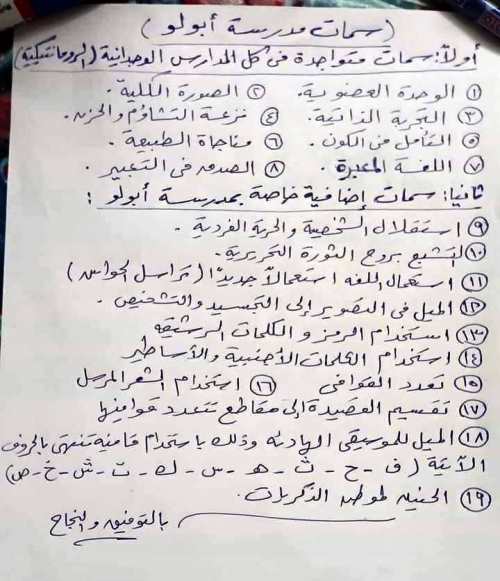 (سمات مدرسة أبولو)
أولاً: سمات متواجدة فى كل المدارس الوجدانية (الرومانتيكية)
① الوحدة العضوية. ② الصورة الكلية.
③ التجربة الذاتية. ④ نزعة التشاؤم والحزن.
⑤ التأمل فى الكون. ⑥ مناجاة الطبيعة.
⑦ اللغة المعبرة. ⑧ الصدق فى التعبير.
ثانيا: سمات إضافية خاصة بمدرسة أبولو:
⑨ استقلال الشخصية والحرية الفردية.
⑩ التشبع بروح الثورة التحريرية.
⑪ استعمال اللغة استعمالاً جديدًا (تراسل الحواس)
⑫ الميل فى التصوير إلى التجسيد والتشخيص.
⑬ استخدام الرمز والكلمات الرشيقة
⑭ استخدام الكلمات الأجنبية والأساطير
⑮ تعدد القوافى ⑯ استخدام الشعر المرسل
⑰ تقسيم القصيدة إلى مقاطع تتعدد قوافيها
⑱ الميل للموسيقى الهادئة وذلك باستخدام قافية تنتهى بالحروف
الآتية (ف - ح - ث - هـ - س - ك - ت - ش - خ - ص)
⑲ الحنين لموطن الذكريات.
بالتوفيق والنجاح